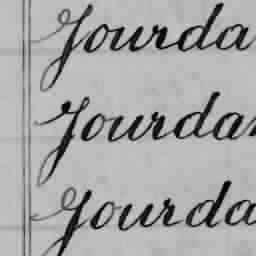 Jourda
Jourdan
Jourda